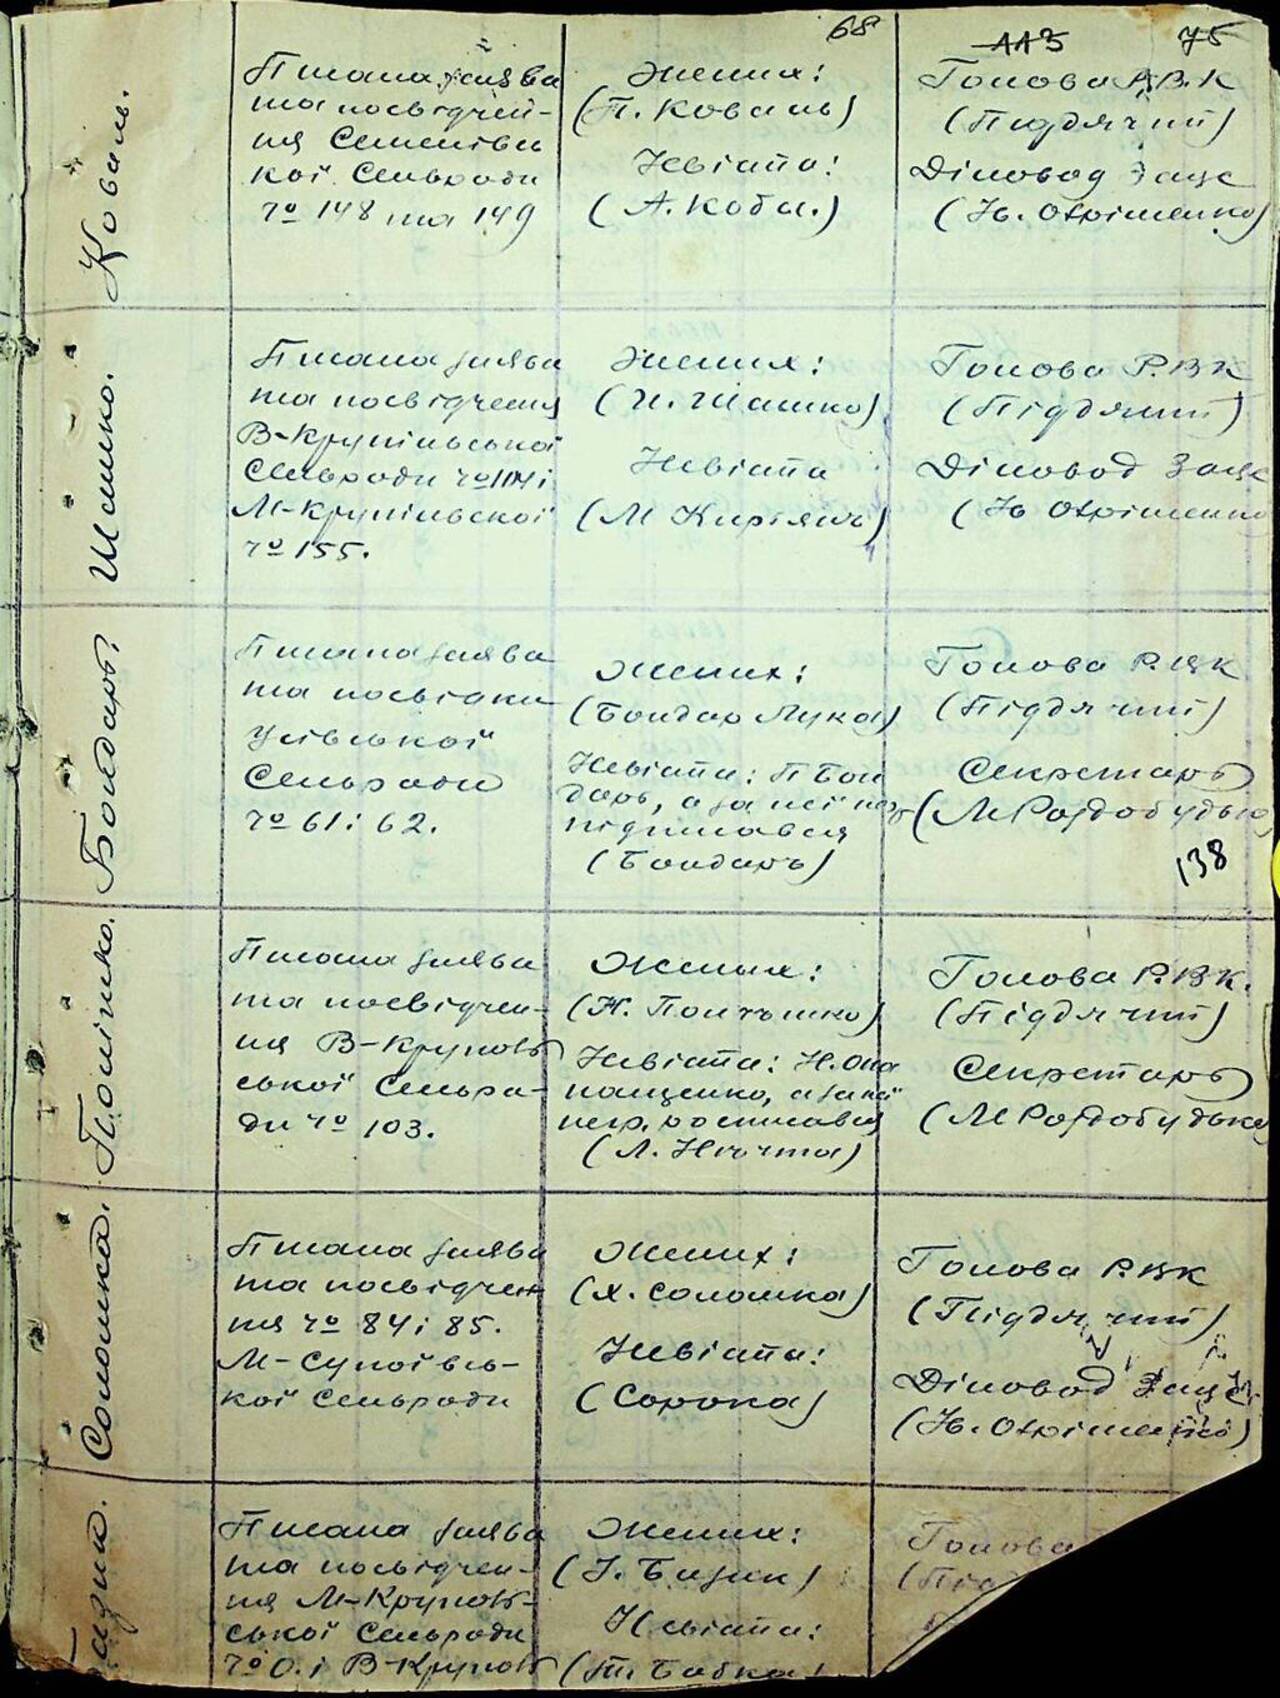 68
113 75
Коваль.
Писана заява
та посвідчен-
ня Семенівсь
кої Сельради
№ 148 та 149
Жених:
(П. Коваль)
Невіста:
(А. Коба.)
Голова Р.В.К
(Піддячий)
Діловод Загс
(Ів. Охріменко)
Шашко.
Писана заява
та посвідчення
В-Крупільської
Сельради № 104 і
М-Крупільської
№ 155.
Жених:
(И. Шашко)
Невіста
(М Кирієнч)
Голова Р.ВК
(Піддячий)
Діловод Загс
(Ів Охріменко
Бондарь.
Писана заява
та посвідки
Усівської
Сельради
№ 61 і 62.
Жених:
(Бондар Лука)
Невіста: П Бон
дарь, а за неї нег
підписався
(Бондарь)
Голова Р.ВК
(Піддячий)
Секретарь
(М Роздобудько
138
Полішко.
Писана заява
та посвідчен-
ня В-Крупов
ської Сельра-
ди № 103.
Жених:
(Н. Полішко)
Невіста: Н. Опа
нащенко, а за неї
негр. росписався
(Л. Нічита)
Голова Р.ВК.
(Піддячий)
Секретарь
(М Роздобудько
Соломка.
Писана заява
та посвідчен
ня № 84 і 85.
М-Супоївсь-
кої Сельради
Жених:
(Х. Соломка)
Невіста:
(Сорока)
Голова Р.ВК
(Піддячий)
Діловод Загс
(Ів. Охріменко)
Бадик.
Писана заява
та посвідчен-
ня М-Крупов-
ської Сельради
№ 0. і В-Крупов
Жених:
(І. Базик)
Невіста:
(Т. Бабка)
Голова
(Під